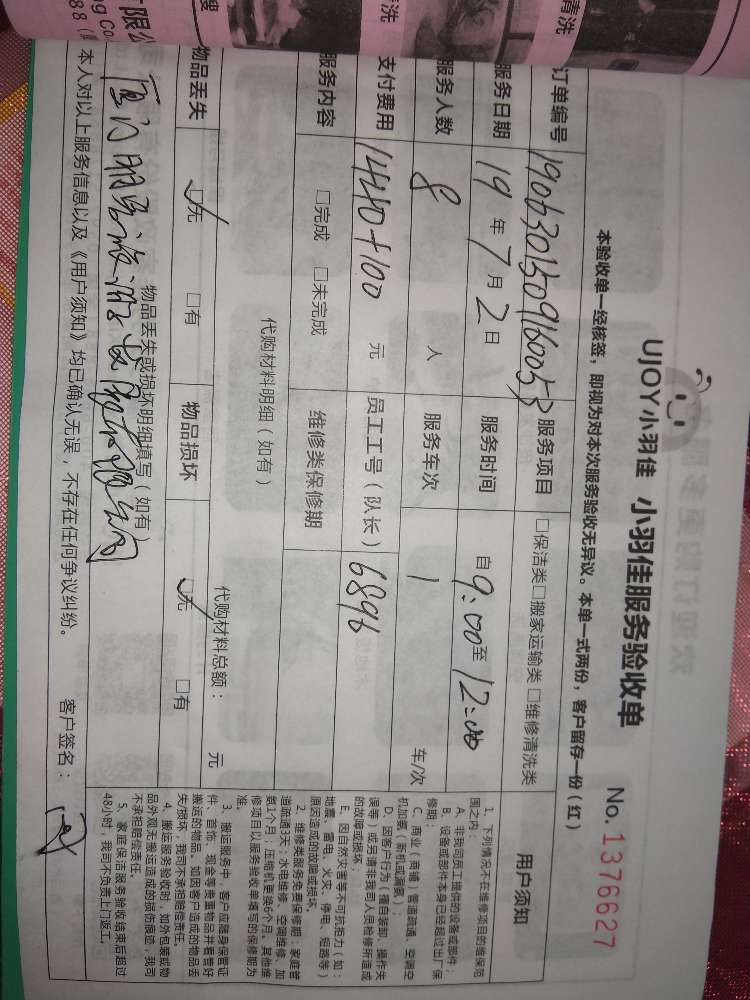 UJOY小羽佳 小羽佳服务验收单
No. 1376627
本验收单一经核签，即视为对本次服务验收无异议。本单一式两份，客户留存一份（红）
订单编号 1906301509160053 服务项目 □保洁类□搬家运输类 □维修清洗类
服务日期 19 年 7 月 2 日 服务时间 自 9:00 至 12:00
服务人数 8 人 服务车次 1 车/次
支付费用 1440+100 元 员工工号（队长） 6896
服务内容 □完成 □未完成 维修类保修期
代购材料明细（如有）
代购材料总额： 元
物品丢失 □无 □有 物品损坏 □无 □有
物品丢失或损坏明细填写（如有）
本人对以上服务信息以及《用户须知》均已确认无误，不存在任何争议纠纷。
客户签名：
用户须知
1、下列情况不在维修项目的维保范
围之内：
A、非我司员工提供的设备或部件；
B、设备或部件本身已经超过出厂保
修期；
C、商业（商铺）管道疏通、空调空
机加氨（新机或漏氨）；
D、因客户行为（擅自装卸、操作失
误等）或另请非我司人员检修所造成
的故障或损坏；
E、因自然灾害等不可抗拒力（如：
地震、雷电、火灾、停电、短路等）
原因造成的故障或损坏。
2、维修类服务免费保修期：家庭管
道疏通3天；水电维修、空调维修、加
氨1个月；压缩机更换6个月。其他维
修项目以服务验收单填写的保修期为
准。
3、搬运服务中，客户应随身保管证
件、首饰、现金等贵重物品并看管好
搬运的物品。如因客户造成的物品丢
失/损坏，我司不承担赔偿责任。
4、搬运服务验收时，如外包装或物
品外观无搬运造成的损伤痕迹，我司
不承担赔偿责任。
5、家庭保洁服务验收结束后超过
48小时，我司不负责上门返工。
清洗
清洗
有限公